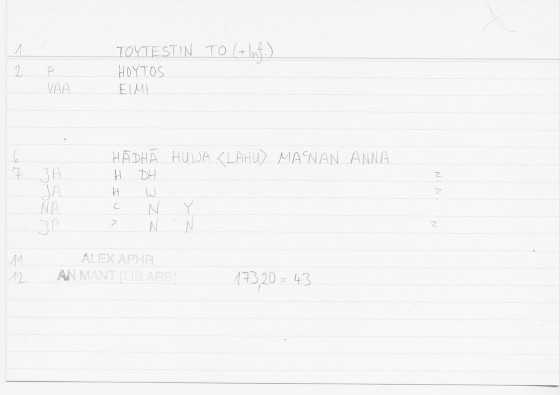 1 TOYTESTIN TO (+Inf.)
2 P HOYTOS
VAA EIMI
6 HĀDHĀ HUWA <LAHU> MAʿNAN ANNA
7 JA H DH =
JA H W =
NA ʿ N Y
JP ʾ N N =
11 ALEX APHR
12 AN MANT [LIB ARB] 173,20 = 43